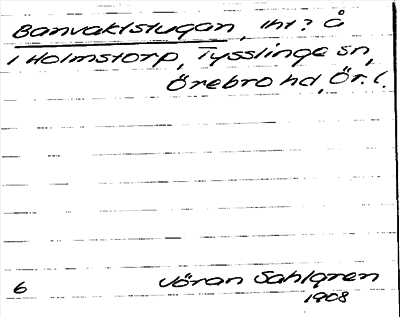 Banvaktstugan, iht? å
i Holmstorp, Tysslinge sn,
Örebro hd, Ör. l.
6 Jöran Sahlgren
1908